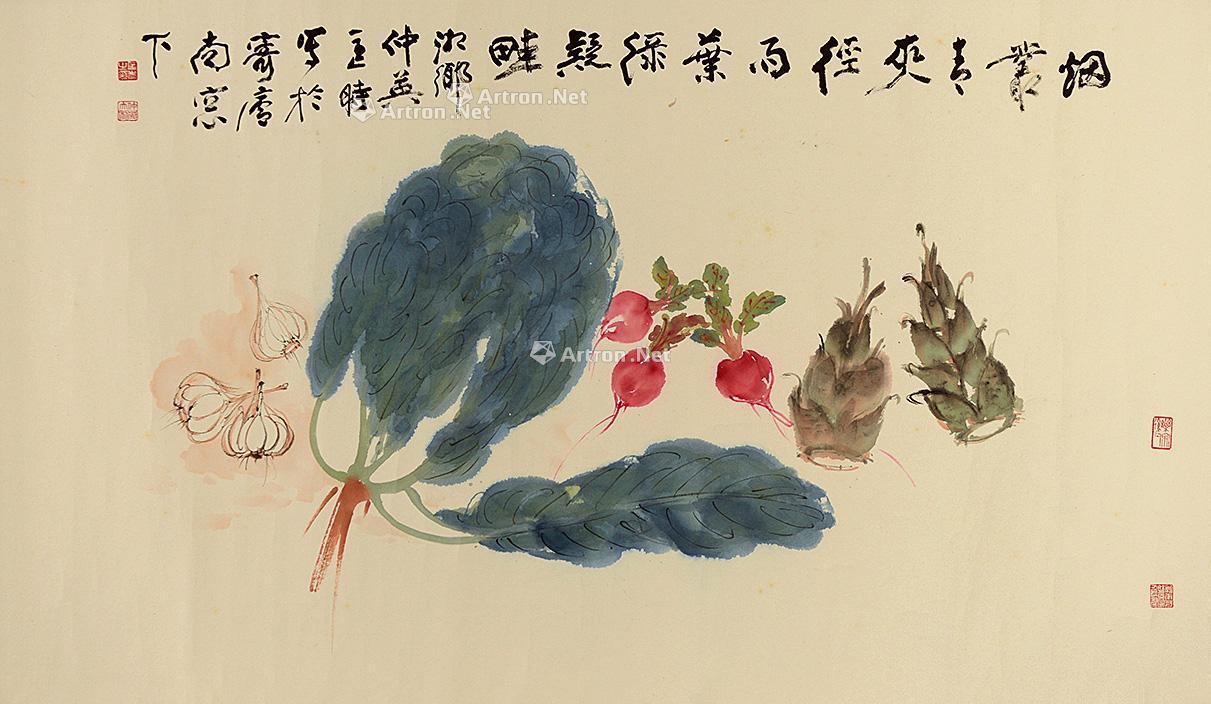 烟叢青夾徑雨葉綠凝畦
湘鄉
仲英
匡時
寫於
寄廬
南窓
下
Artron.Net
Artron.Net
Artron.Net